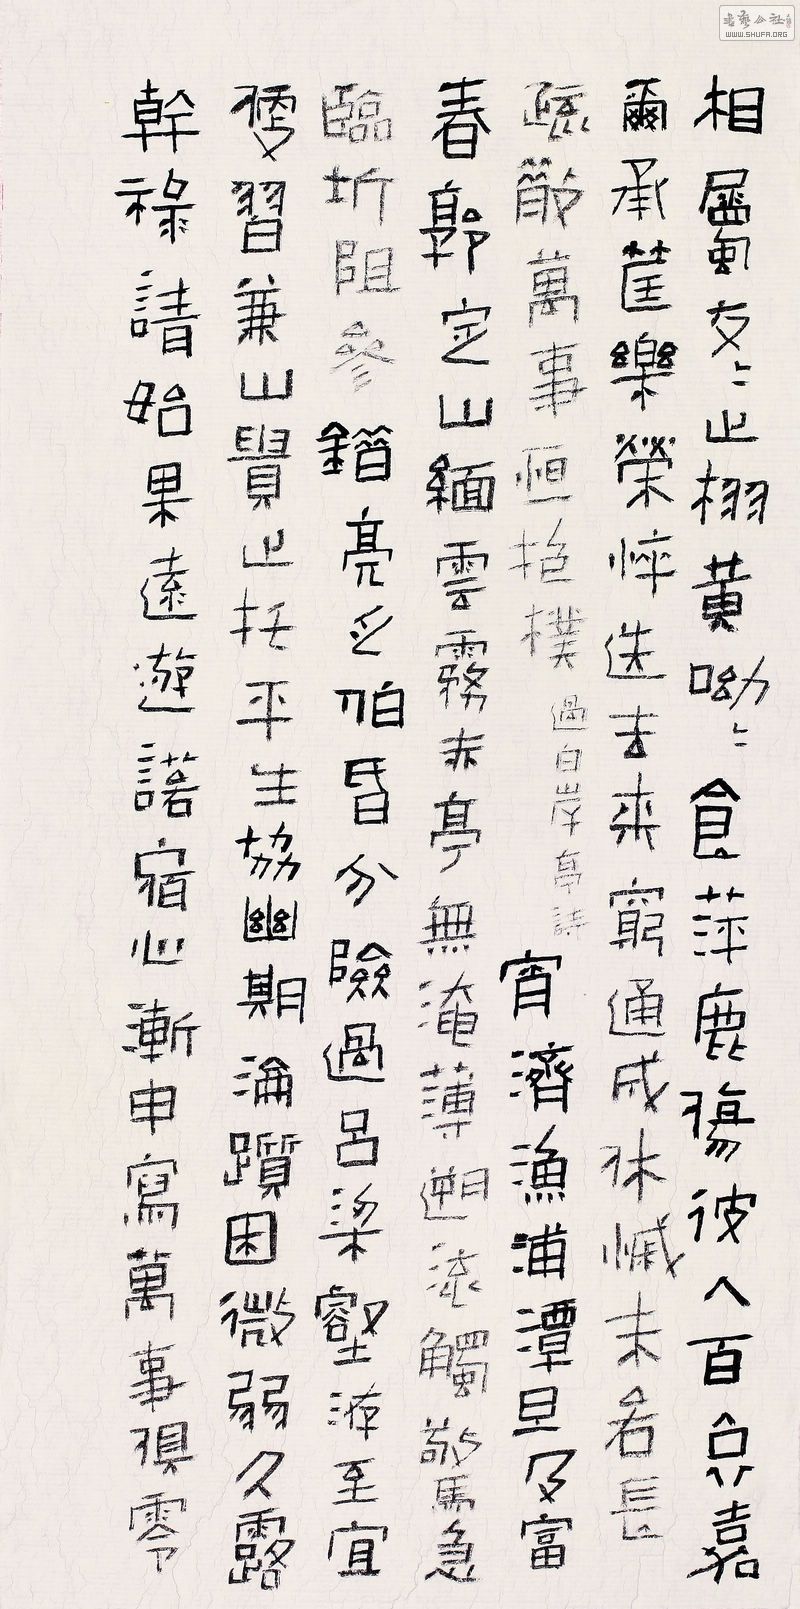 相屬交交止栩黃呦呦食萍鹿傷彼人百哀嘉
爾承筐樂榮悴迭去來窮通成休慽未若長
疏散萬事恒抱樸 過白岸亭詩 宵濟漁浦潭旦及富
春郭定山緬雲霧赤亭無淹薄遡流觸驚急
臨圻阻參錯亮乏伯昏分險過呂梁壑洊至宜
便習兼山貴止托平生協幽期淪躓困微弱久露
幹祿請始果遠遊諾宿心漸申寫萬事俱零
書藝公社
WWW.SHUFA.ORG